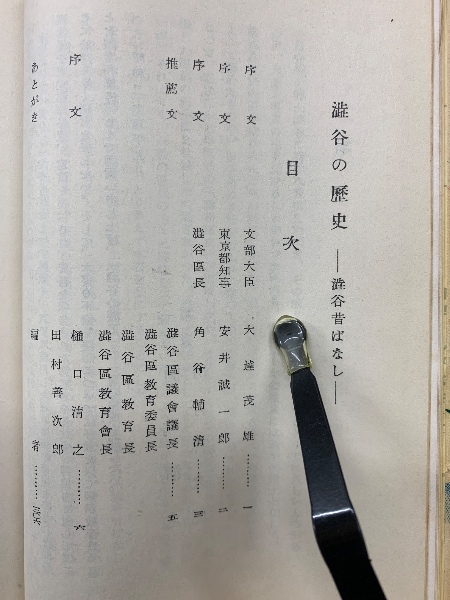 澁谷の歷史 ――澁谷昔ばなし――
目次
序文 文部大臣 大達茂雄………一
序文 東京都知事 安井誠一郎………二
序文 澁谷區長 角谷輔淸………三
推薦文 澁谷區議會議長………五
澁谷區教育委員長
澁谷區教育長
澁谷區教育會長
序文 樋口淸之………六
田村善次郎
あとがき 編者………